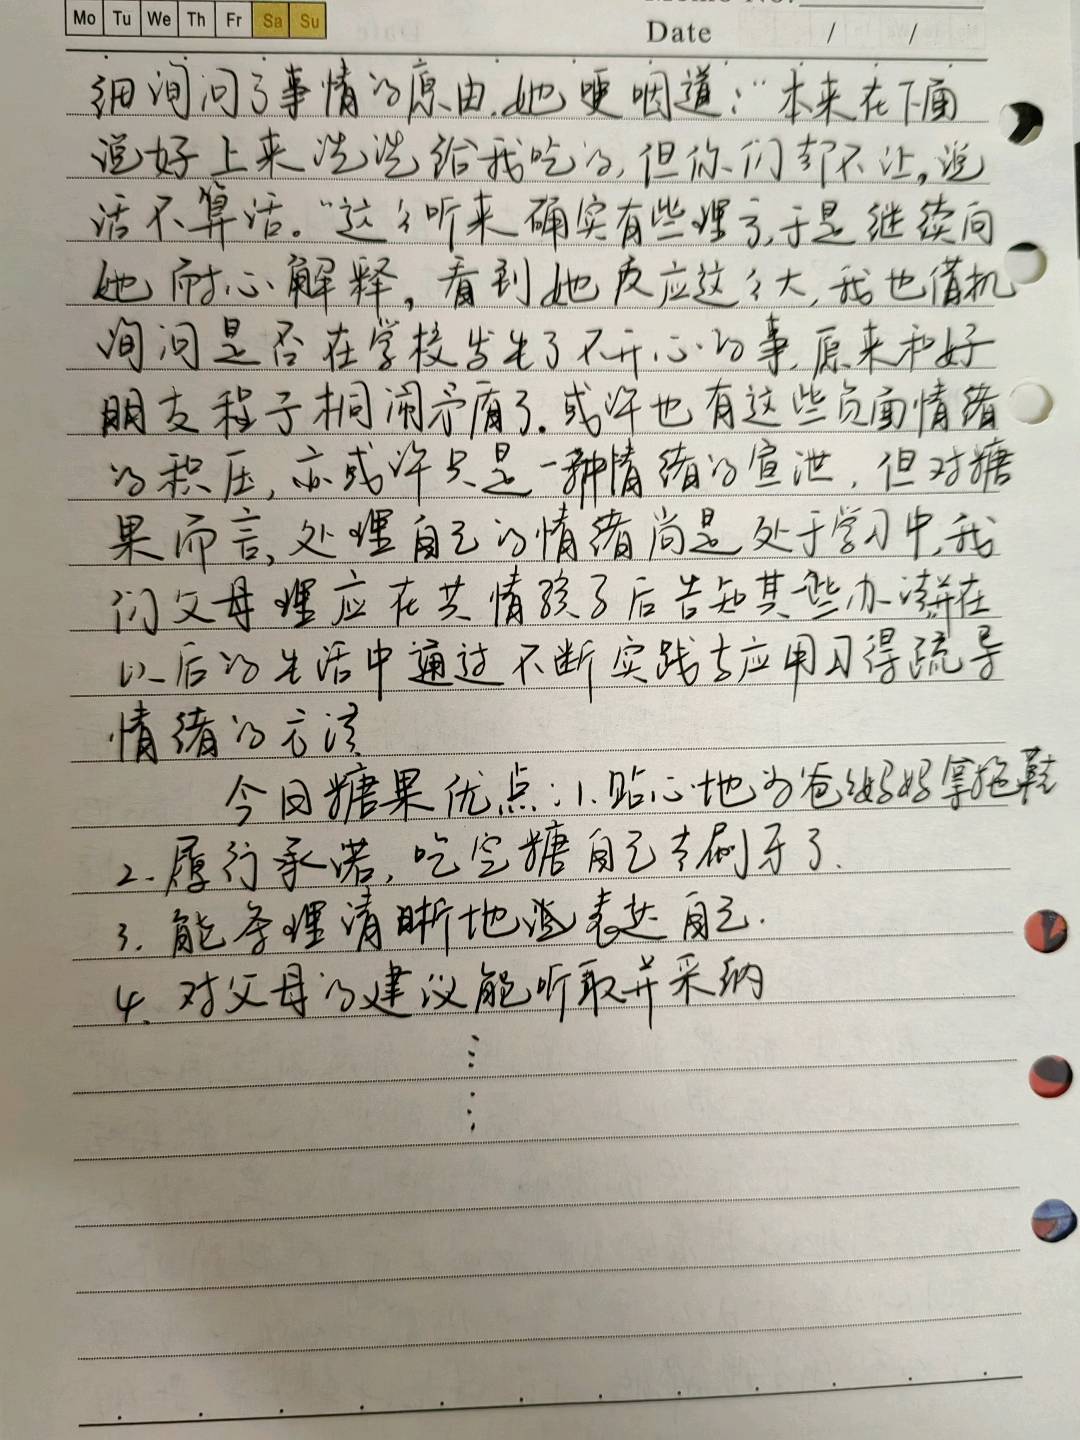 Mo Tu We Th Fr Sa Su
Date / /
细询问了事情的原由，她哽咽道："本来在下面
说好上来洗洗给我吃的，但你们却不让，说
话不算话。"这么听来确实有些理亏，于是继续向
她耐心解释，看到她反应这么大，我也借机
询问是否在学校发生了不开心的事，原来和好
朋友程子桐闹矛盾了。或许也有这些负面情绪
的积压，亦或许只是一种情绪的宣泄，但对糖
果而言，处理自己的情绪尚是处于学习中，我
们父母理应在共情孩子后告知其一些办法并在
以后的生活中通过不断实践与应用习得疏导
情绪的方法
今日糖果优点：1.贴心地为爸爸妈妈拿拖鞋
2.履行承诺，吃完糖自己去刷牙了.
3.能条理清晰地表达自己.
4.对父母的建议能听取并采纳
……